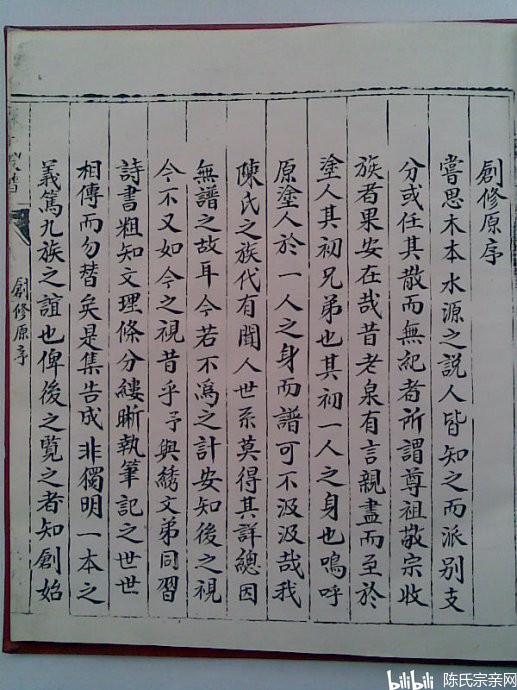 創修原序
嘗思木本水源之説人皆知之而派別支
分或任其散而無紀者所謂尊祖敬宗收
族者果安在哉昔老泉有言親盡而至於
塗人其初兄弟也其初一人之身也嗚呼
原塗人於一人之身而譜可不汲汲哉我
陳氏之族代有聞人世系莫得其詳總因
無譜之故耳今若不爲之計安知後之視
今不又如今之視昔乎予與綉文弟同習
詩書粗知文理條分縷晰執筆記之世世
相傳而勿替矣是集告成非獨明一本之
義篤九族之誼也俾後之覽之者知創始
創修原序
bilibili 陈氏宗亲网